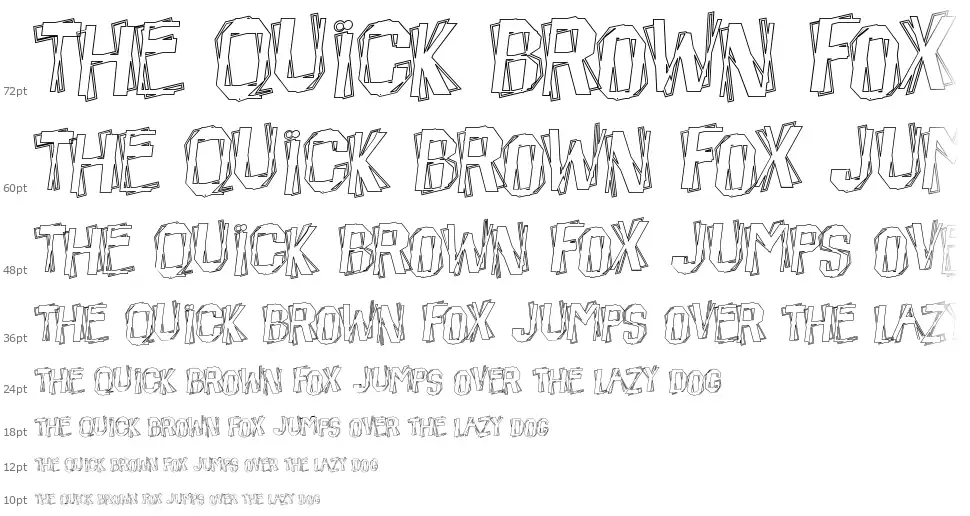 72pt THE QUICK BROWN FOX
60pt THE QUICK BROWN FOX JUM
48pt THE QUICK BROWN FOX JUMPS OVE
36pt THE QUICK BROWN FOX JUMPS OVER THE LAZY
24pt THE QUICK BROWN FOX JUMPS OVER THE LAZY DOG
18pt THE QUICK BROWN FOX JUMPS OVER THE LAZY DOG
12pt THE QUICK BROWN FOX JUMPS OVER THE LAZY DOG
10pt THE QUICK BROWN FOX JUMPS OVER THE LAZY DOG